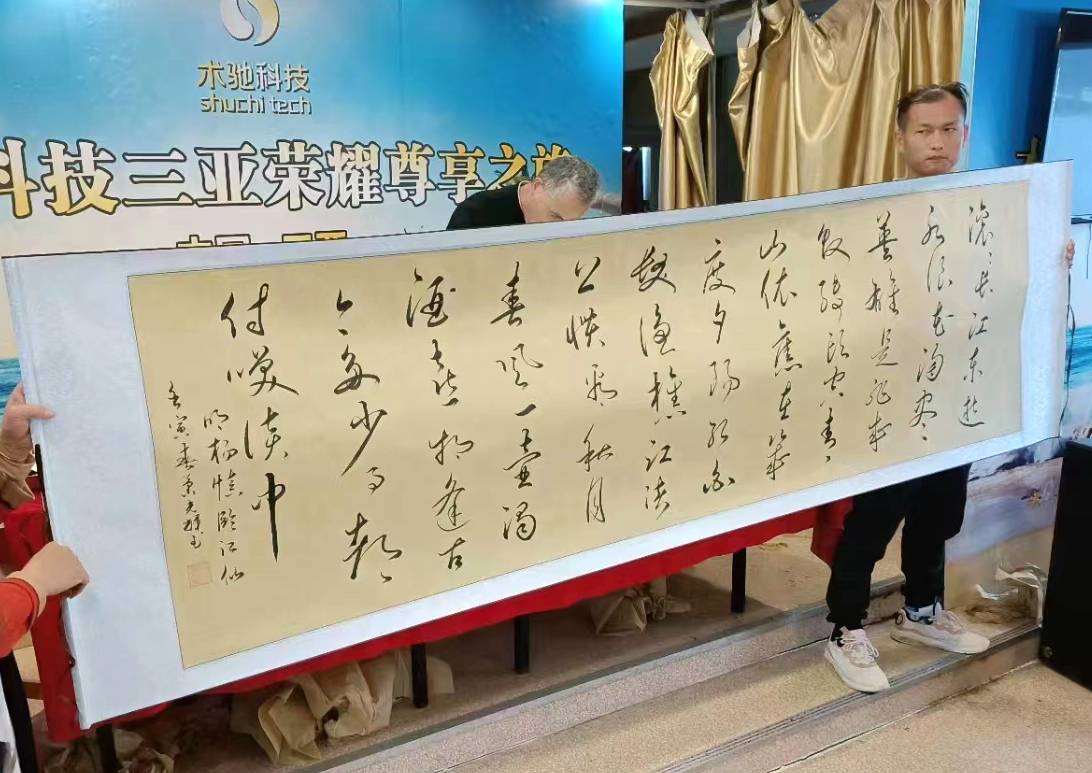 术驰科技
shuchi tech
科技三亚荣耀尊享之旅
滚滚长江东逝
水浪花淘尽
英雄是非成
败转头空青
山依旧在几
度夕阳红白
发渔樵江渚
上惯看秋月
春风一壶浊
酒喜相逢古
今多少事都
付笑谈中
明杨慎临江仙
壬寅春